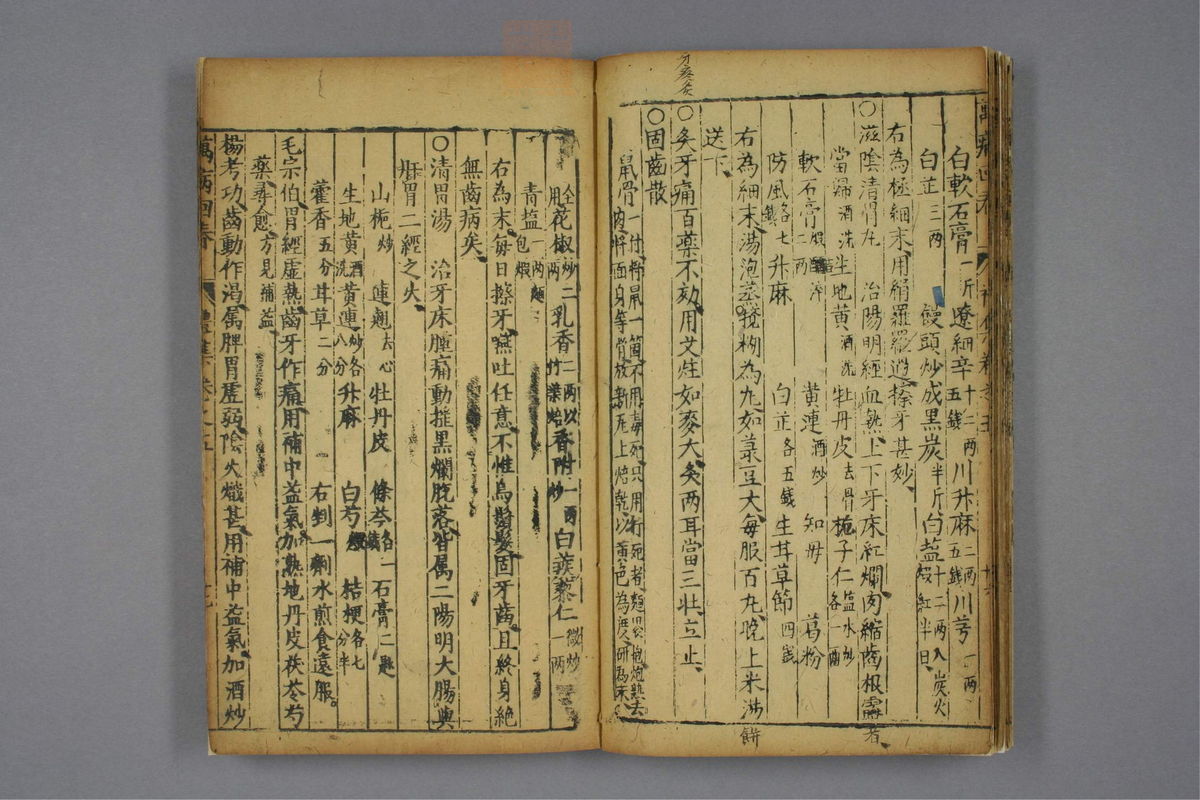 白軟石膏一斤遼細辛十二兩五錢川升麻二兩五錢川芎一兩
白芷三兩 饅頭炒成黑炭半斤白盐十二兩入炭火煅紅半日
右為極細末用絹羅羅過擦牙甚妙
○滋陰清胃丸 治陽明經血熱上下牙床紅爛肉縮齒根露者
當歸酒洗生地黃酒洗牡丹皮去骨梔子仁盐水炒各一兩
軟石膏煅二兩 黃連酒炒 知母 葛粉
防風各七錢升麻 白芷各五錢生甘草節四錢
右為細末湯泡蒸餅攪糊為丸如菉豆大每服百丸晚上米湯
送下
○灸牙痛百藥不効用艾炷如麥大灸两耳當三壯立止
○固齒散
鼠骨
牙疼灸
花椒炒二兩乳香二兩以竹葉焙香附一兩炒白蒺藜仁微炒一兩
青盐一兩麵包煅
右為末每日擦牙嚥吐任意不惟烏鬚髮固牙齒且終身絕
無齒病矣
○清胃湯 治牙床腫痛動摇黑爛脫落皆属二陽明大腸與
胃二經之火
山梔炒 連翹去心 牡丹皮 條芩各一錢石膏二匙
生地黃酒洗黃連炒各八分升麻 白芍煨 桔梗各七分半
藿香五分甘草二分 右剉一劑水煎食遠服
毛宗伯胃經虛熱齒牙作痛用補中益氣加熟地丹皮茯苓芍
藥尋愈方見補益
楊考功齒動作渴属脾胃虛弱陰火熾甚用補中益氣加酒炒
萬病回春